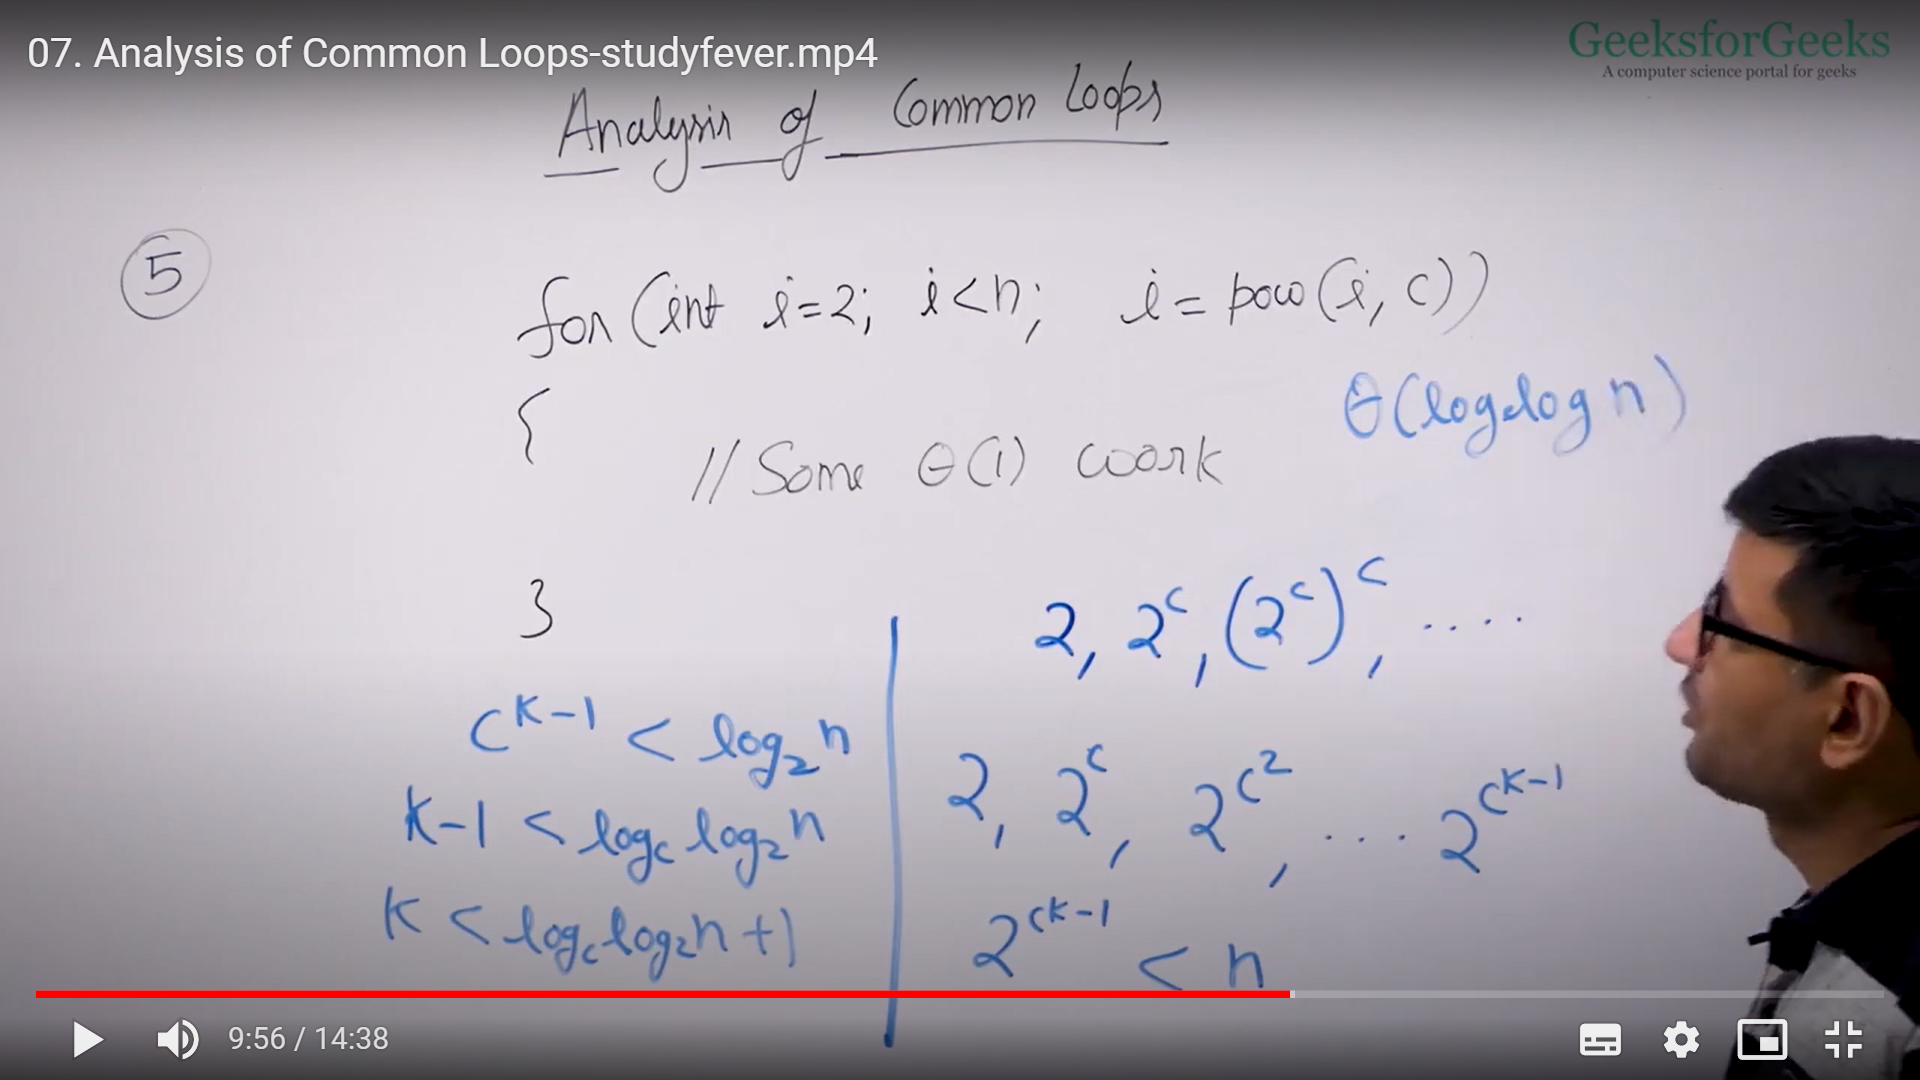 07. Analysis of Common Loops-studyfever.mp4
GeeksforGeeks
A computer science portal for geeks
Analysis of Common Loops
5
for(int i=2; i<n; i=pow(i, c))
{
θ(log log n)
// Some θ(1) work
}
2, 2^c, (2^c)^c, ....
2, 2^c, 2^{c^2}, ... 2^{c^{K-1}}
2^{c^{K-1}} < n
c^{K-1} < log₂n
K-1 < log_c log₂n
K < log_c log₂n+1
9:56 / 14:38